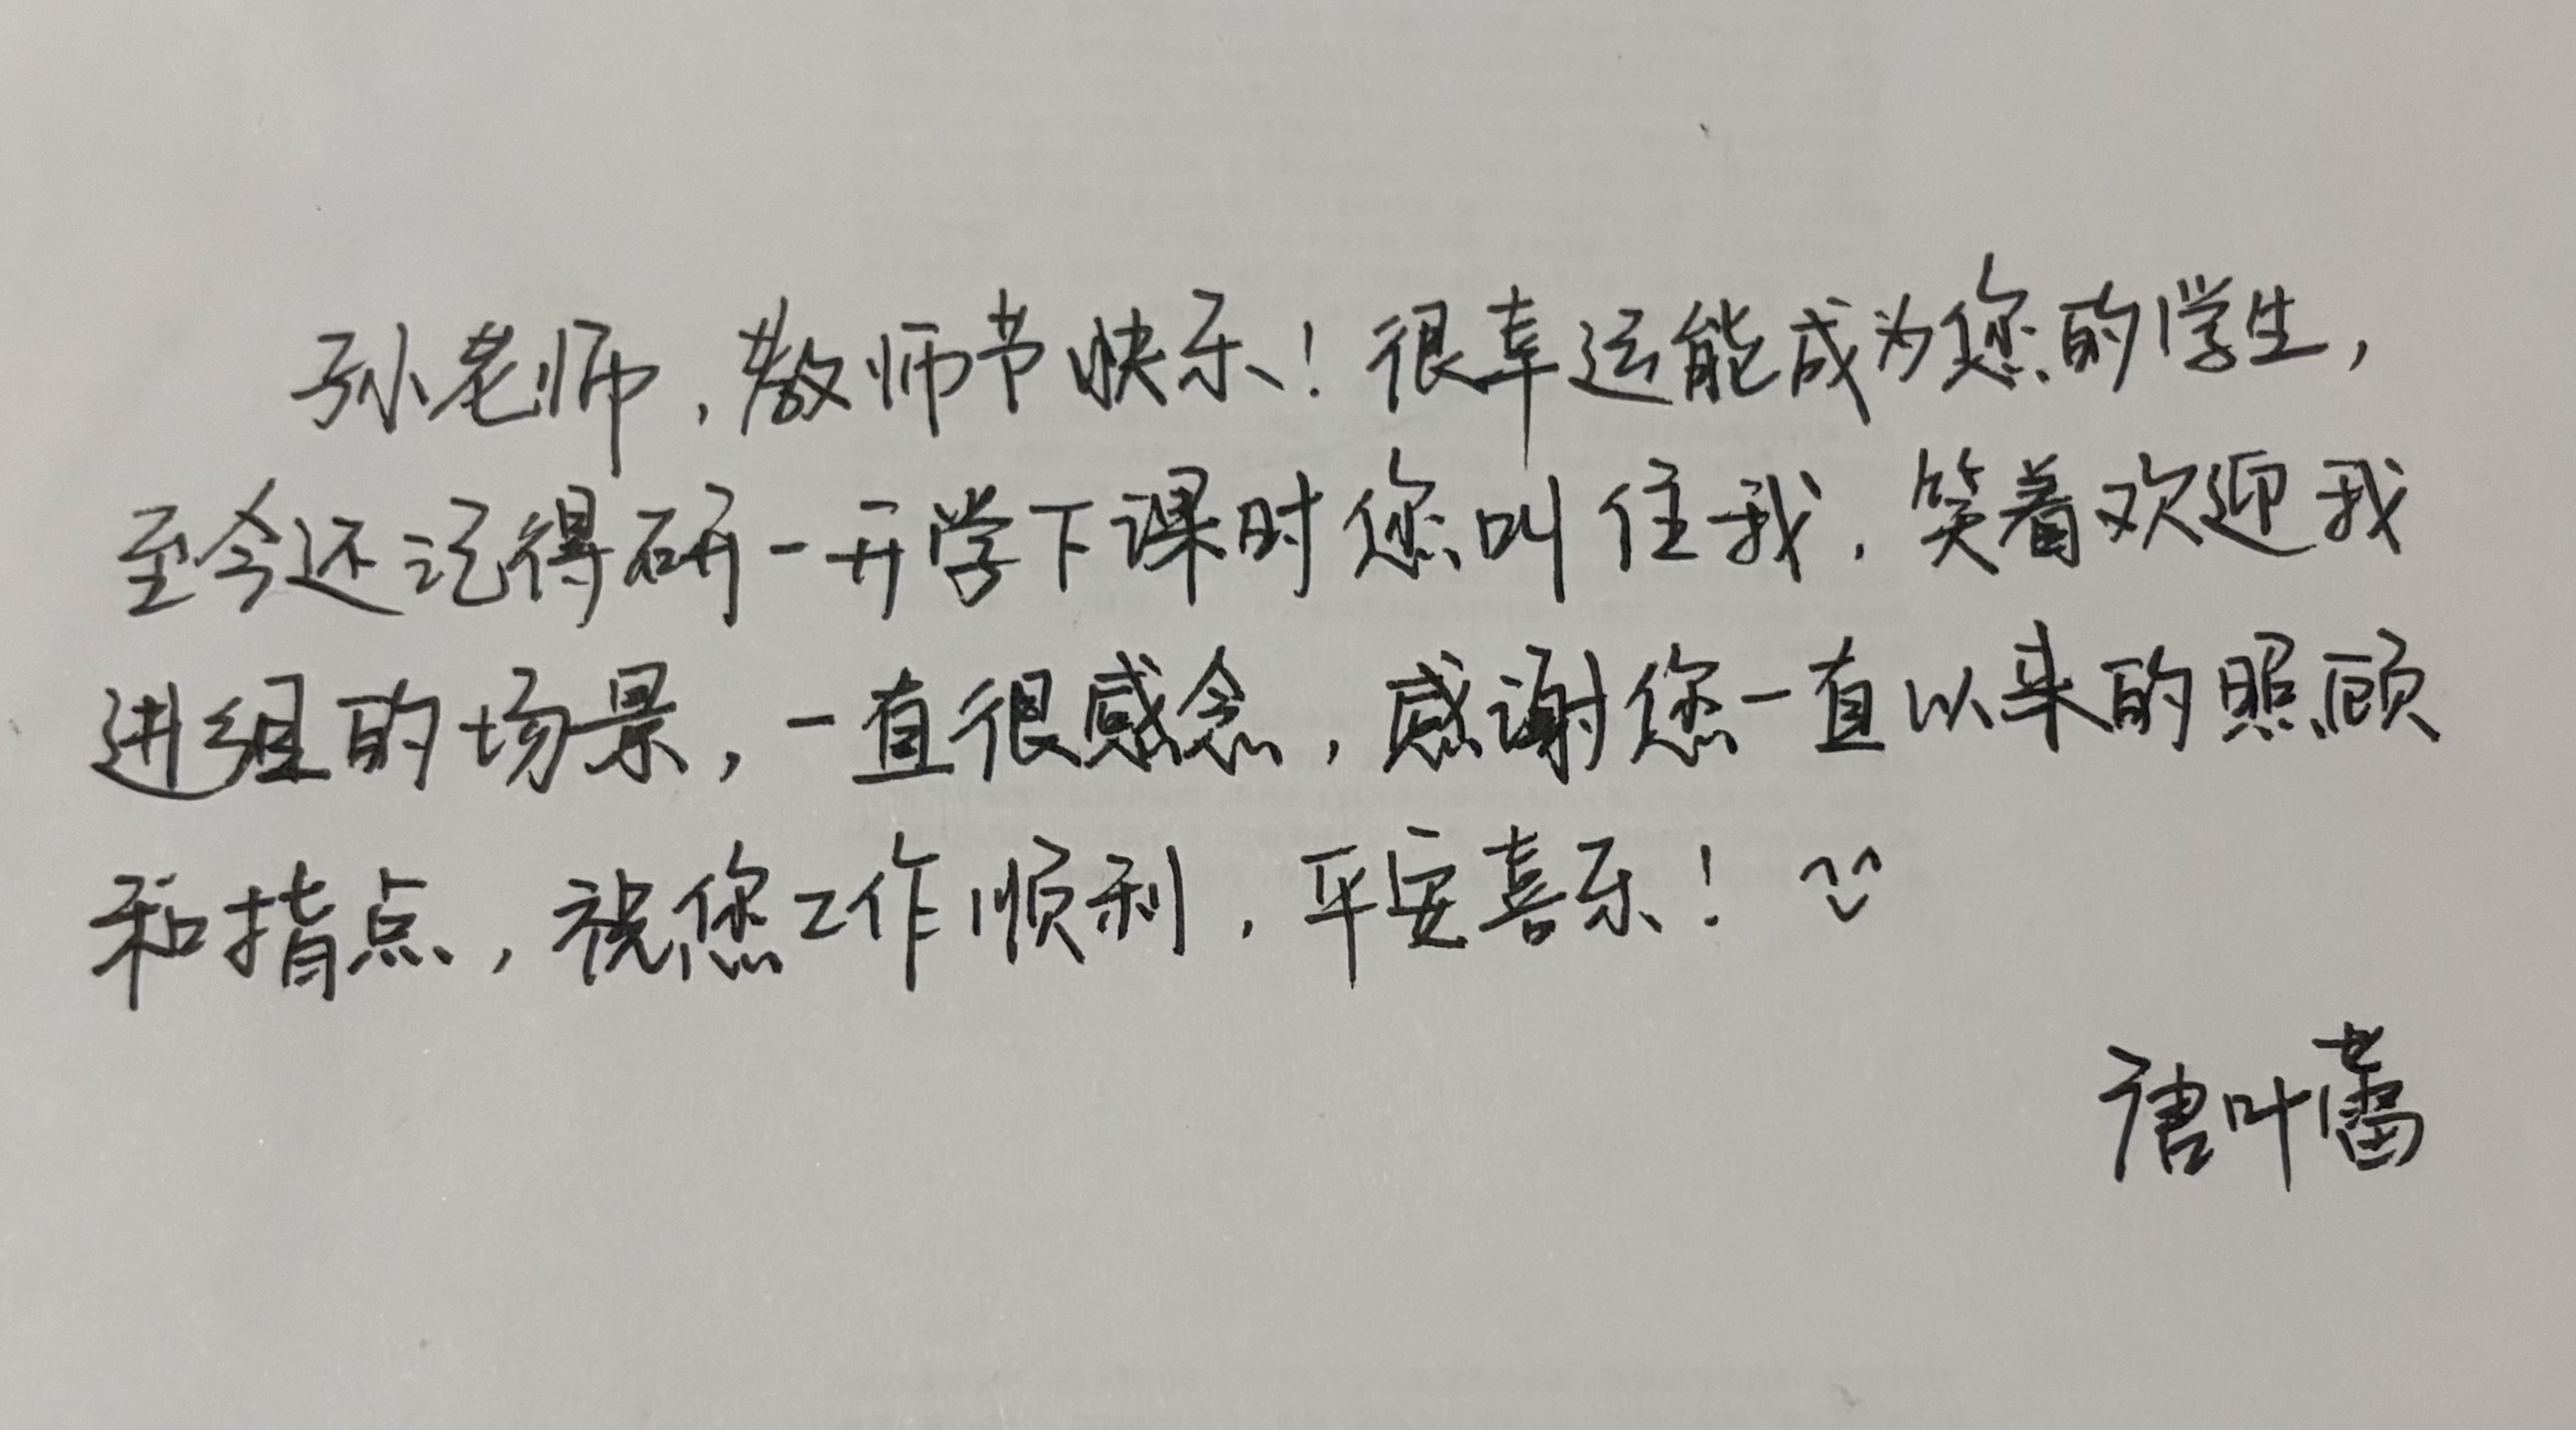 孙老师,教师节快乐!很幸运能成为您的学生,
至今还记得研一开学下课时您叫住我,笑着欢迎我
进组的场景,一直很感念,感谢您一直以来的照顾
和指点,祝您工作顺利,平安喜乐!
唐叶蕾